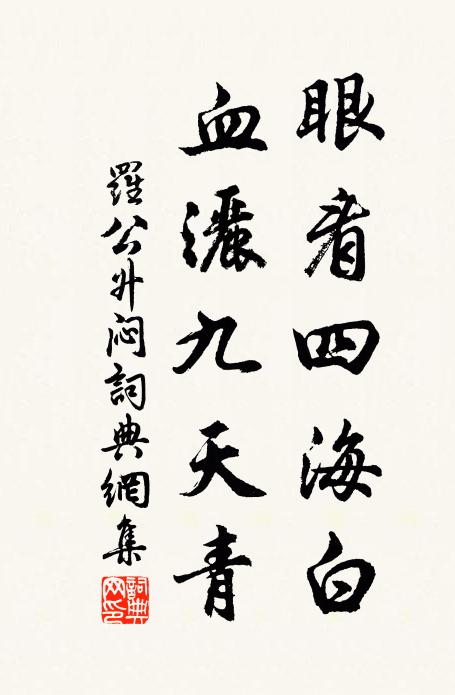 眼看四海白
血灑九天青
羅公升闷詞典網集
詞典網印